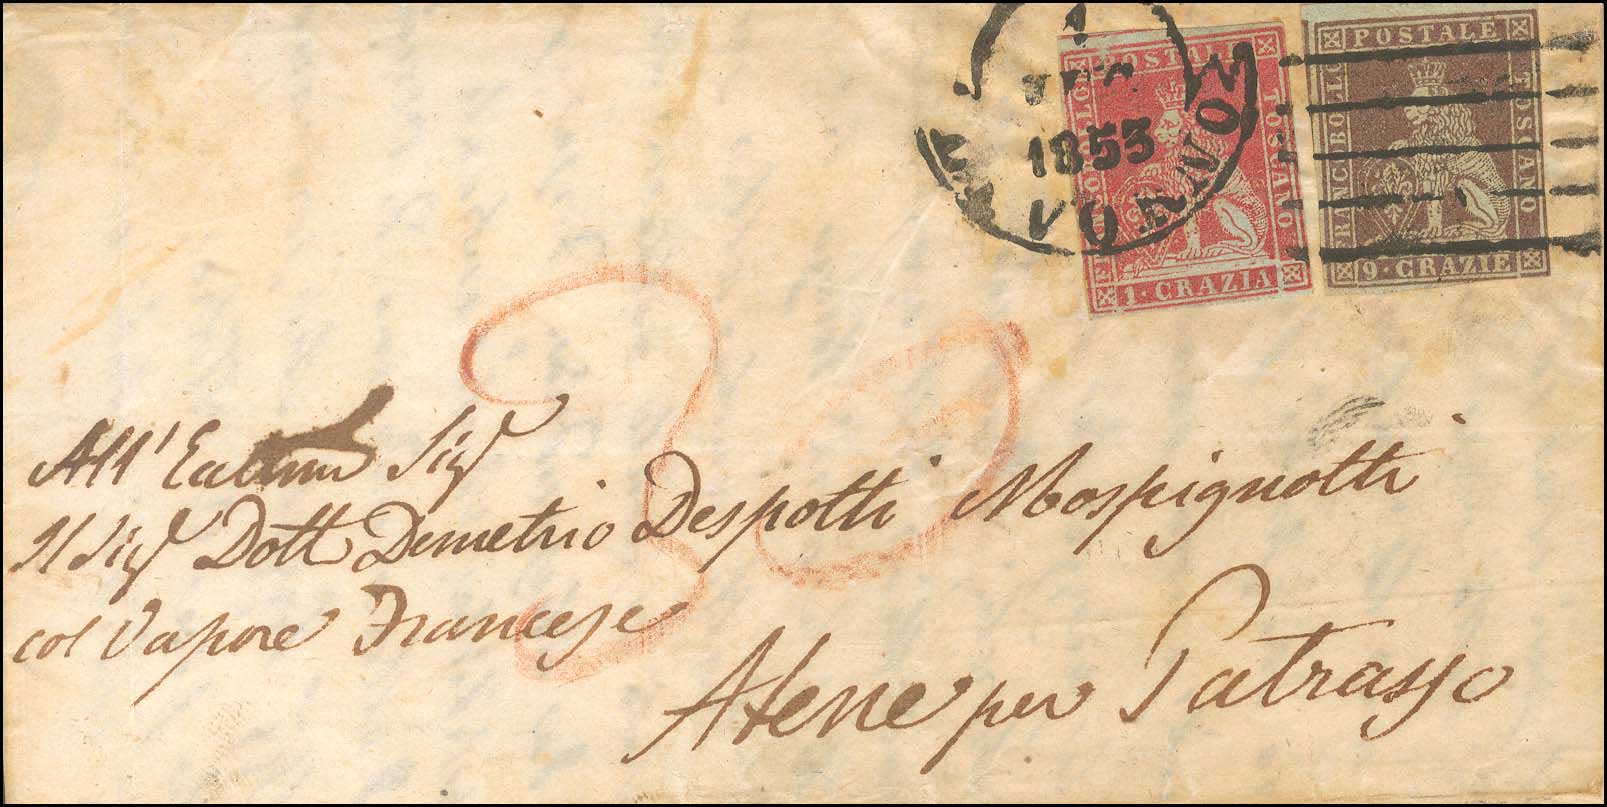 1
1853
LIVORNO
POSTALE
FRANCOBOLLO
TOSCANO
1·CRAZIA
POSTALE
FRANCOBOLLO
TOSCANO
9·CRAZIE
30
All' Sigr
Il Sigr Dott Demetrio Despotti Mospignotti
col Vapore Francese
Atene per Patrasso